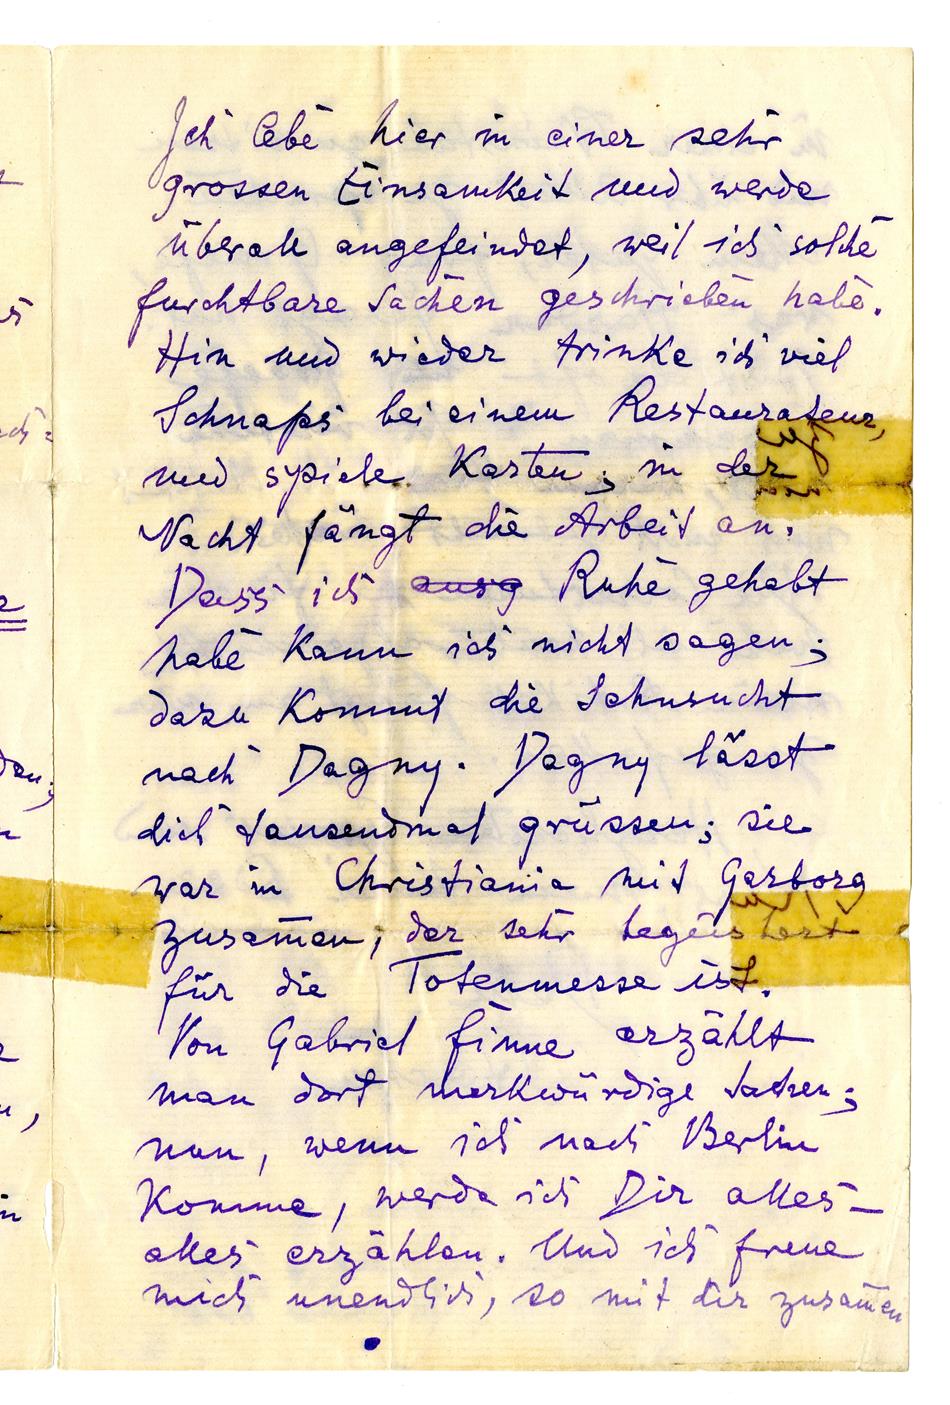 Ich lebe hier in einer sehr
grossen Einsamkeit und werde
überall angefeindet, weil ich solche
furchtbare Sachen geschrieben habe.
Hin und wieder trinke ich viel
Schnaps bei einem Restaurateur,
und spiele Karten; in der
Nacht fängt die Arbeit an.
Dass ich ausg Ruhe gehabt
habe kann ich nicht sagen;
dazu kommt die Sehnsucht
nach Dagny. Dagny lässt
dich tausendmal grüssen; sie
war in Christiania mit Garborg
zusam̄en, der sehr begeistert
für die Totenmesse ist.
Von Gabriel Finne erzählt
man dort merkwürdige Sachen;
nun, wenn ich nach Berlin
komme, werde ich Dir alles–
alles erzählen. Und ich freue
mich unendlich, so mit dir zusam̄en